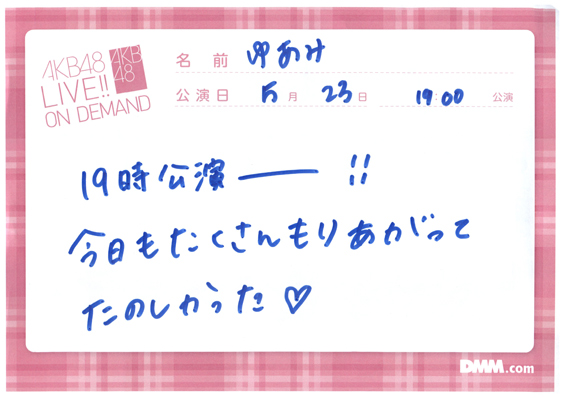 AKB48
LIVE!!
ON DEMAND
AKB
48
名前 ゆあみ
公演日 5月 23日 19:00 公演
19時公演――!!
今日もたくさんもりあがって
たのしかった♡
DMM.com